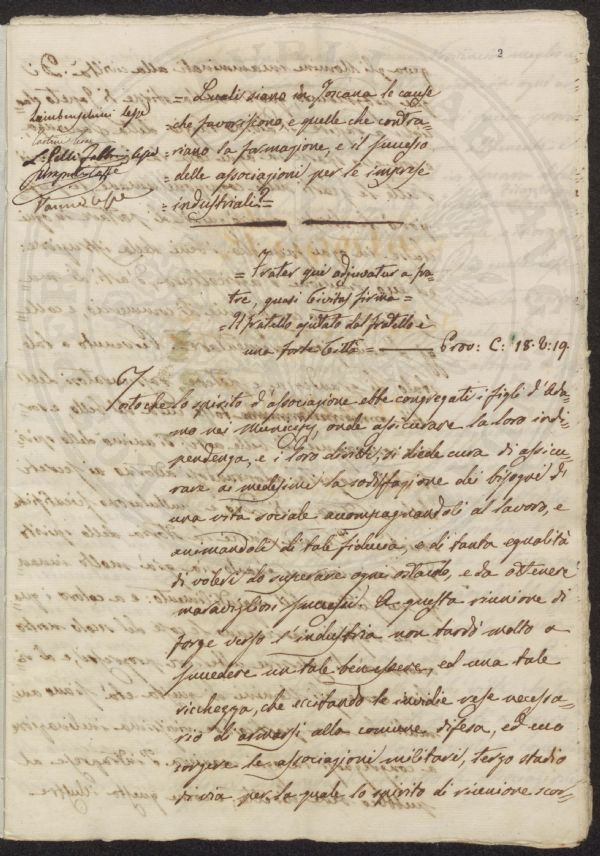 2
= Quali siano in Toscana le cause
che favoriscono, e quelle che contra-
riano la formazione, e il successo
delle associazioni per le imprese
industriali? =
Lambruschini lesse
L. Pelli Fabbroni lesse
Vanni lesse
= Frater qui adjuvatur a fra-
tre, quasi Civitas firma =
= Il fratello ajutato dal fratello è
una forte Città = Prov: C: 18. v: 19.
Tosto che lo spirito d'associazione ebbe congregati i figli d'Ada-
mo nei Municipj, onde assicurare la loro indi-
pendenza, e i loro diritti, si diede cura di assicu-
rare ai medesimi la sodisfazione dei bisogni di
una vita sociale accompagnandoli al lavoro, e
animandoli di tale fiducia, e di tanta egualità
di volere da superare ogni ostacolo, e da ottenere
maravigliosi successi. A questa riunione di
forze verso l'industria non tardò molto a
succedere un tale benessere, ed una tale
ricchezza, che eccitando le invidie rese necessa-
rio di armarsi alla comune difesa, ed ecco
sorgere le associazioni militari, terzo stadio
di via per la quale lo spirito di riunione scor-